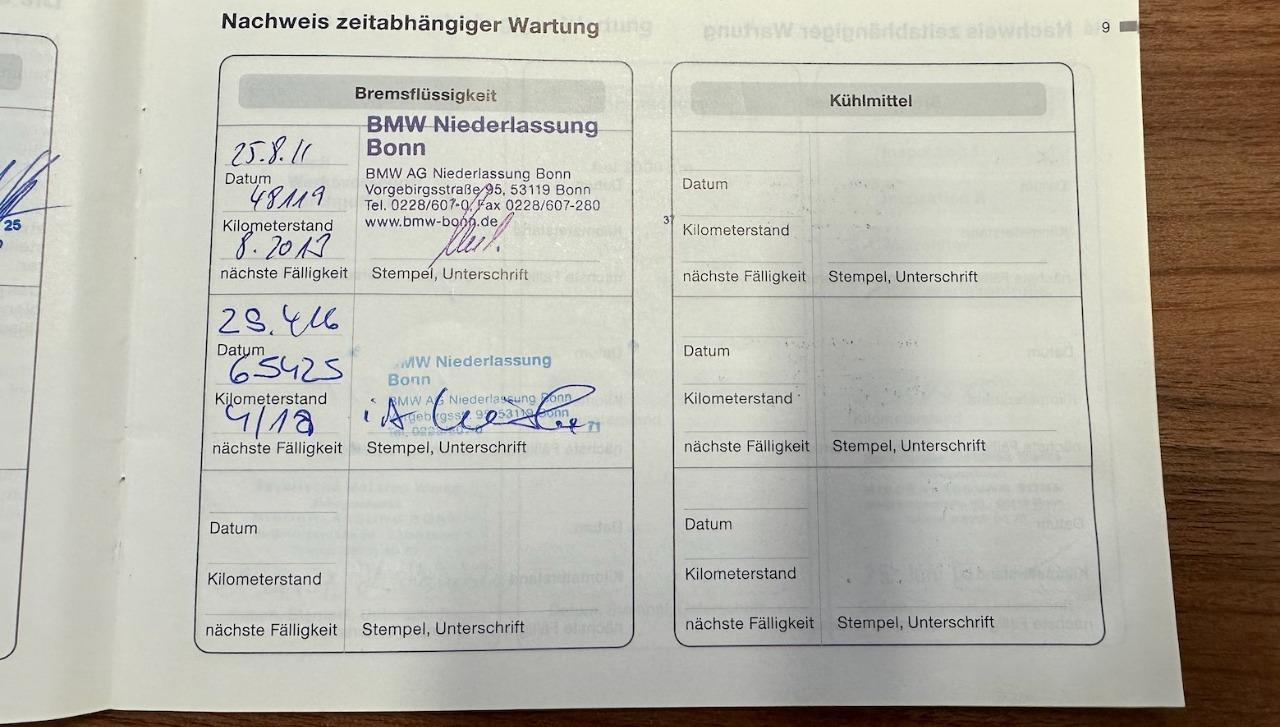 Nachweis zeitabhängiger Wartung
9
Bremsflüssigkeit
25.8.11
Datum
48119
Kilometerstand
8.2013
nächste Fälligkeit
BMW Niederlassung
Bonn
BMW AG Niederlassung Bonn
Vorgebirgsstraße 95, 53119 Bonn
Tel. 0228/607-0, Fax 0228/607-280
www.bmw-bonn.de
Stempel, Unterschrift
29.4.16
Datum
65425
Kilometerstand
4/18
nächste Fälligkeit
BMW Niederlassung
Bonn
BMW AG Niederlassung Bonn
53119 Bonn
71
Stempel, Unterschrift
Datum
Kilometerstand
nächste Fälligkeit
Stempel, Unterschrift
Kühlmittel
Datum
Kilometerstand
nächste Fälligkeit
Stempel, Unterschrift
Datum
Kilometerstand
nächste Fälligkeit
Stempel, Unterschrift
Datum
Kilometerstand
nächste Fälligkeit
Stempel, Unterschrift
25